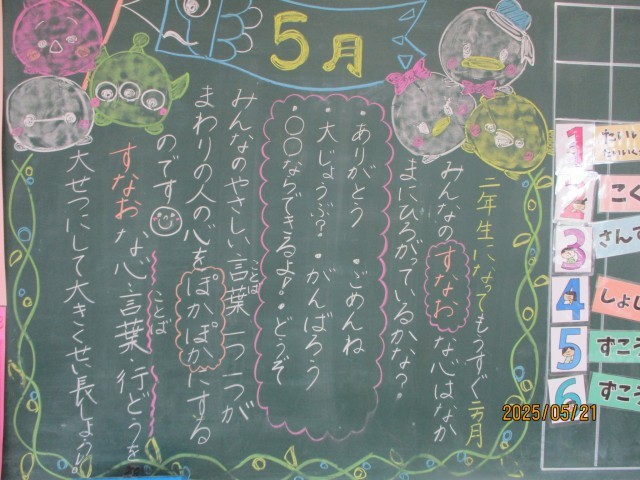 5月
二年生になってもうすぐ二ヵ月
みんなのすなおな心はなか
まにひろがっているかな?
・ありがとう ・ごめんね
・大じょうぶ? ・がんばろう
・〇〇ならできるよ! ・どうぞ
みんなのやさしい言葉一つ一つが
ことば
まわりの人の心をぽかぽかにする
のです
すなおな心・言葉・行どうを
ことば
大せつにして大きくせい長しましょう。
1
2
こく
3
さんす
4
しょし
5
ずこう
6
ずこう
2025/05/21